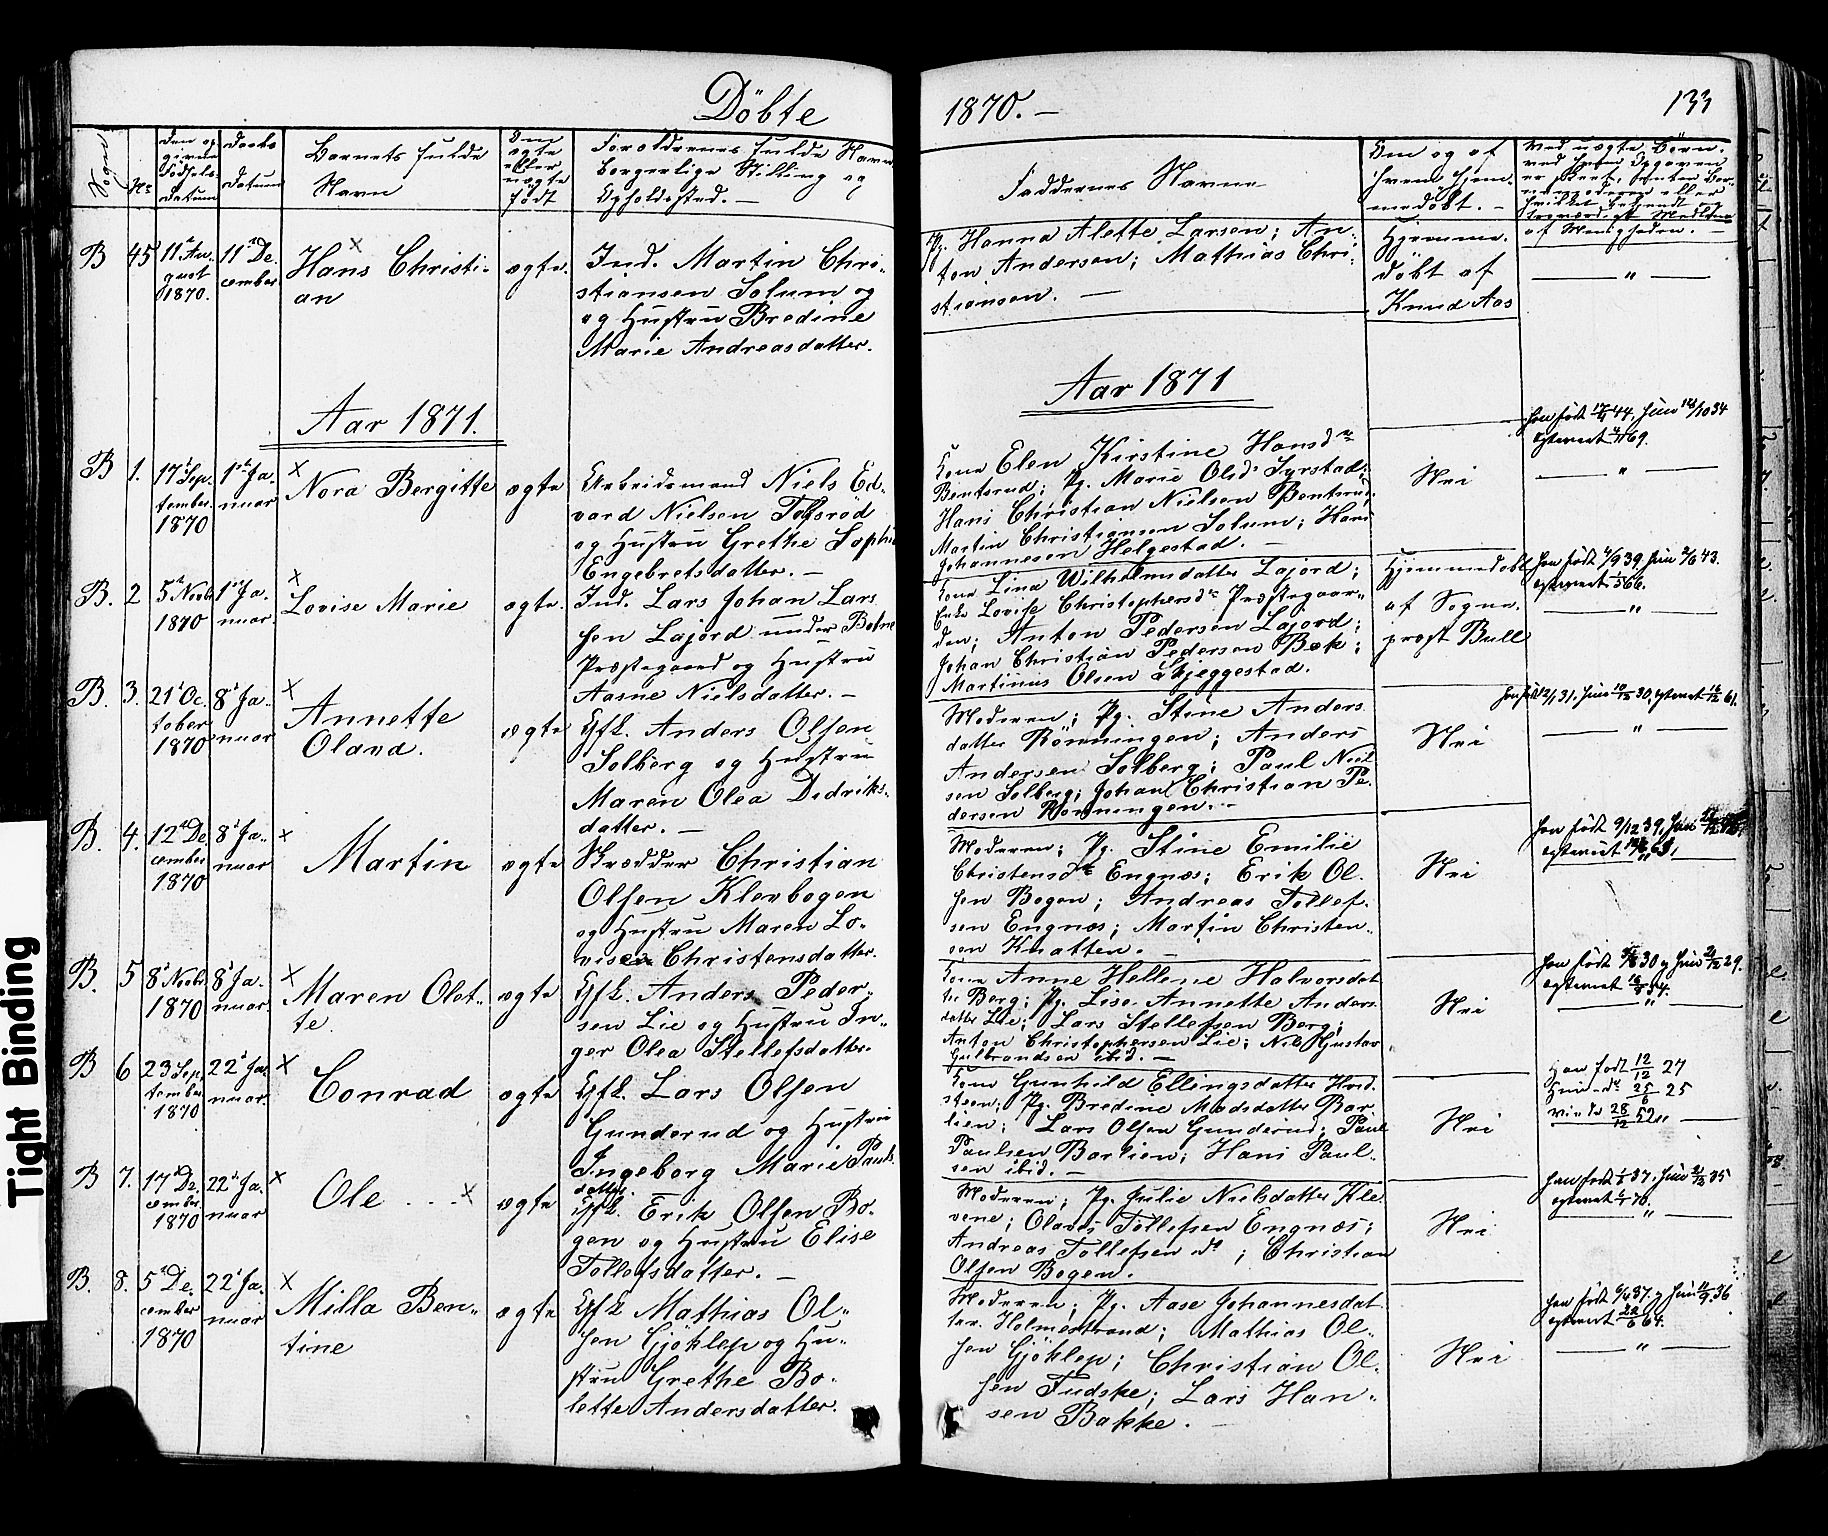 Döbte
1870.-
133
Sogne
No
Den op
givne
Födsels
Datum
Daabs
Datum
Barnets fulde
Navn
Om
ægte
eller
uægte
födt
Forældrenes fulde Navn
borgerlige Stilling og
Opholdssted. -
Faddernes Navne
Om og af
hvem hjem-
medöbt. -
Ved uægte Börn,
af Menigheden. -
B
45
11te Au-
gust
1870.
11te De-
cember
Hans Christi-
an
ægte.
Ind. Martin Chri-
stiansen Solum og
og Hustru Bredine
Marie Andreasdatter.
Pg. Hanna Alette Larsen; An-
ton Andersen; Mathias Chri-
stiansen. -
Hjemme-
döbt af
Knud Aas
— " —
Aar 1871.
Aar 1871
B
1.
17de Sep-
tember
1870
1ste Ja-
nuar
Nora Bergitte
ægte
Arbeidsmand Niels Ed-
vard Nielsen Tofsröd
og Hustru Grethe Sophie
Engebretsdatter. -
Kone Elen Kirstine Hansdtr
Bentsrud; Pg. Marie Olsdr Syrstad;
Hans Christian Nielsen Bentsrud;
Martin Christiansen Solum; Hans
Johannesen Helgestad. -
Nei
ægteviet 69.
— " —
B.
2
5te Novbr
1870
1ste Ja-
nuar
Lovise Marie
ægte.
Ind. Lars Johan Lars
sen Lajord under Botne
Præstegaard og Hustru
Aasne Nielsdatter. -
Kone Lina Wilhelmsdatter Lajord;
Enke Lovise Christophersdr Præstegaar-
den; Anton Pedersen Lajord;
Johan Christian Pedersen Bæk;
Martinus Olsen Skjeggestad.
Hjemmedöbt
af Sogne-
præst Bull
han födt 4/9 39, hun 2/6 43.
ægteviet 66.
— " —
B.
3.
21de Oc-
tober
1870
8de Ja-
nuar
Annette
Olava.
ægte
Gfl. Anders Olsen
Solberg og Hustru
Maren Olea Dedriks-
datter. -
Moderen; Pg. Stine Anders
datter Rönningen; Anders
Andersen Solberg; Paul Niel
sen Solberg; Johan Christian Pe-
dersen Rönningen. -
Nei
— " —
B.
4.
12te De-
cember
1870
8de Ja-
nuar
Martin
ægte
Skrædder Christian
Olsen Klevbogen
og Hustru Maren Lo-
vise Christensdatter.
Moderen; Pg. Stine Emilie
Christensdtr Engnæs; Erik Ol-
sen Bogen; Andreas Tollef-
sen Engnæs; Martin Christen-
sen Knatten. -
Nei
B.
5
8de Novbr
1870
8de Ja-
nuar.
Maren Olet-
te.
ægte
Gfl. Anders Peder-
sen Lie og Hustru In-
ger Olea Stellefsdatter.
Kone Anne Hellene Halvorsdat
ter Berg; Pg. Lise Annette Anders
datter Lie; Lars Stellefsen Berg;
Anton Christophersen Lie; Nils Gustav
Gulbrandsen ibid. -
Nei
ægteviet 54.
— " —
B
6
23 Sep-
tember
1870
22de Ja-
nuar.
Conrad
ægte
Gfl. Lars Olsen
Gunderud og Hustru
Ingeborg Marie Pauls-
datter.
Kone Gunhild Ellingsdatter
Pg. Bredine Madsdatter Bar-
lien; Lars Olsen Gunderud; Paul
Paulsen Barlien; Hans Paul-
sen ibid. -
Nei
Han födt 12/12 27
Hun do 25/6 25
Viede 28/12 52
B
7.
17de De-
cember
1870
22de Ja-
nuar
Ole
ægte
Gfl. Erik Olsen Bo-
gen og Hustru Elise
Tollefsdatter. -
Moderen; Pg. Julie Nielsdatter Kle-
vene; Olaves Tollefsen Engnæs;
Andreas Tollefsen do; Christian
Olsen Bogen.
Nei
— " —
B.
8.
5te De-
cember
1870
22de Ja-
nuar
Milla Ben-
tine
ægte
Gfl. Mathias Ol-
sen Gjöklep og Hu-
stru Grethe Bo-
lette Andersdatter.
Moderen; Pg. Aase Johannesdat-
ter Holmestrand; Mathias Ol-
sen Gjöklep; Christian Ol-
sen Tudske; Lars Han-
sen Bakke. -
Nei
— " —
Tight Binding